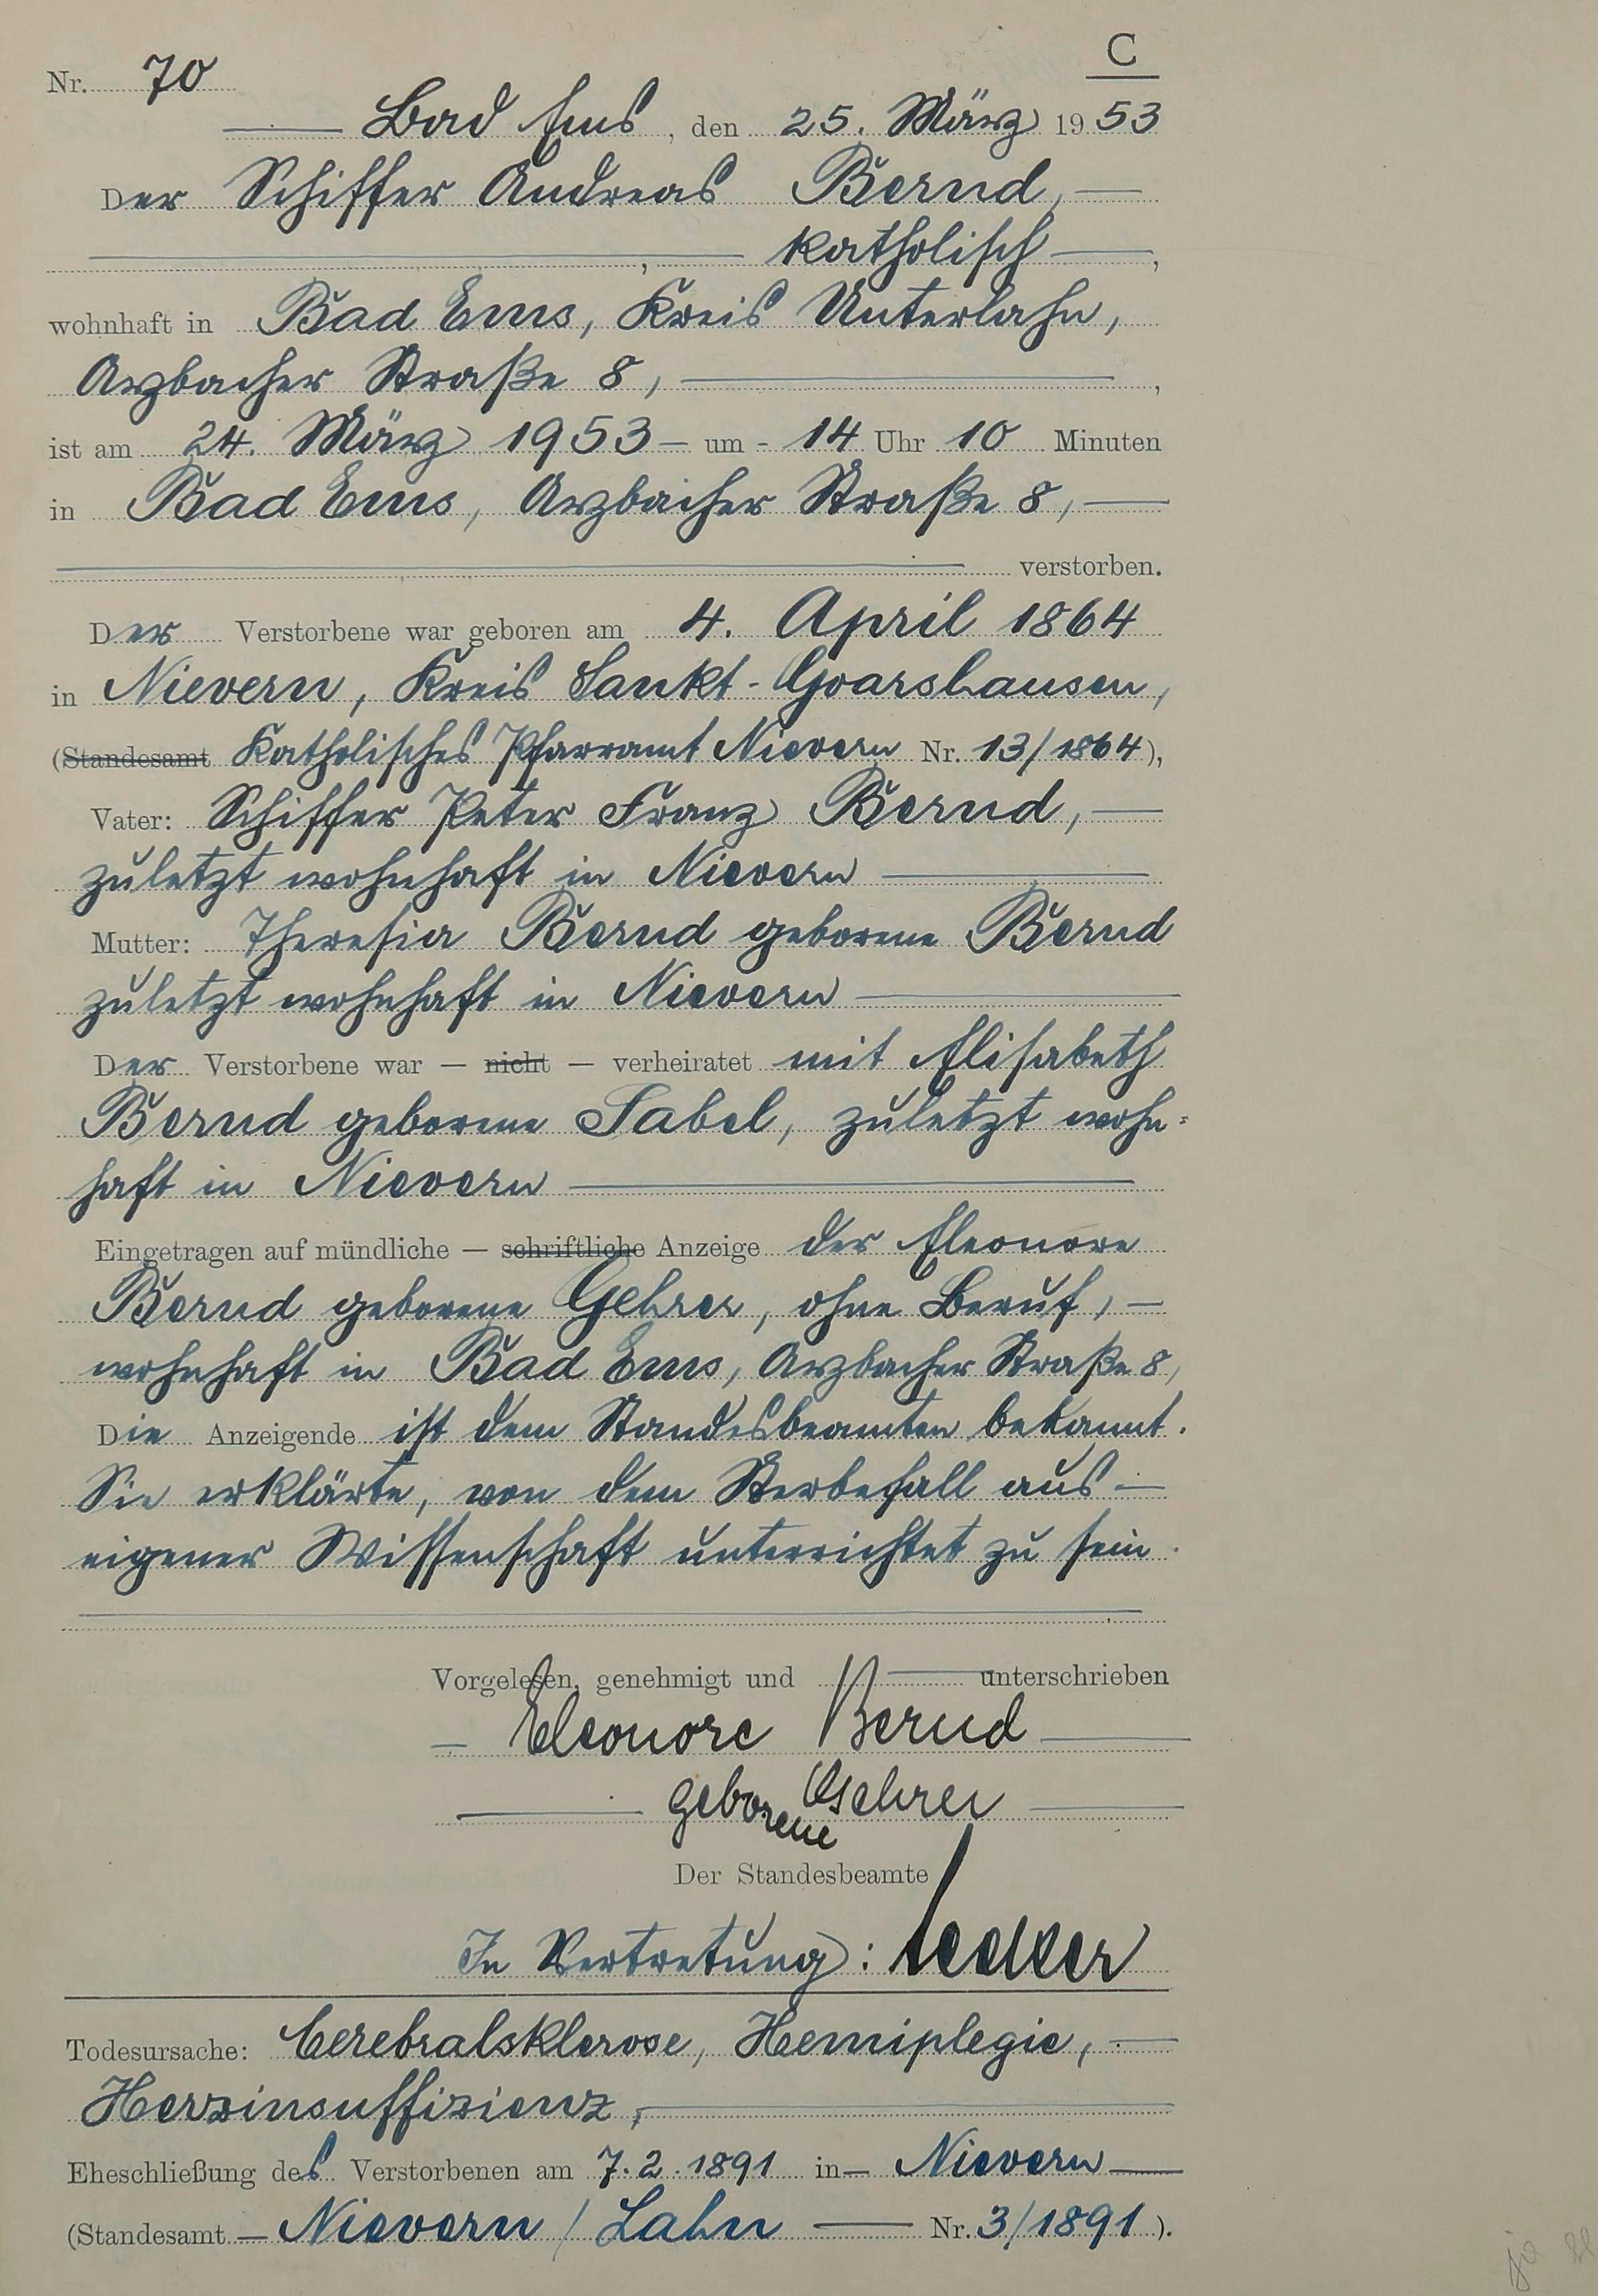 C
Nr. 70
Bad Ems, den 25. März 1953
Der Schiffer Andreas Bernd,
, katholisch,
wohnhaft in Bad Ems, Kreis Unterlahn,
Arzbacher Straße 8, ,
ist am 24. März 1953 um 14 Uhr 10 Minuten
in Bad Ems, Arzbacher Straße 8,
verstorben.
Der Verstorbene war geboren am 4. April 1864
in Nievern, Kreis Sankt-Goarshausen,
(Standesamt Katholisches Pfarramt Nievern Nr. 13/1864),
Vater: Schiffer Peter Franz Bernd,
zuletzt wohnhaft in Nievern
Mutter: Theresia Bernd geborene Bernd
zuletzt wohnhaft in Nievern
Der Verstorbene war — nicht — verheiratet mit Elisabeth
Bernd geborene Sabel, zuletzt wohn-
haft in Nievern
Eingetragen auf mündliche — schriftliche Anzeige der Eleonore
Bernd geborene Gehrer, ohne Beruf,
wohnhaft in Bad Ems, Arzbacher Straße 8,
Die Anzeigende ist dem Standesbeamten bekannt.
Sie erklärte, von dem Sterbefall aus
eigener Wissenschaft unterrichtet zu sein.
Vorgelesen, genehmigt und unterschrieben
Eleonore Bernd
geborene Gehrer
Der Standesbeamte
In Vertretung:
Todesursache: Cerebralsklerose, Hemiplegie,
Herzinsuffizienz,
Eheschließung des Verstorbenen am 7.2.1891 in Nievern
(Standesamt Nievern / Lahn Nr. 3/1891).